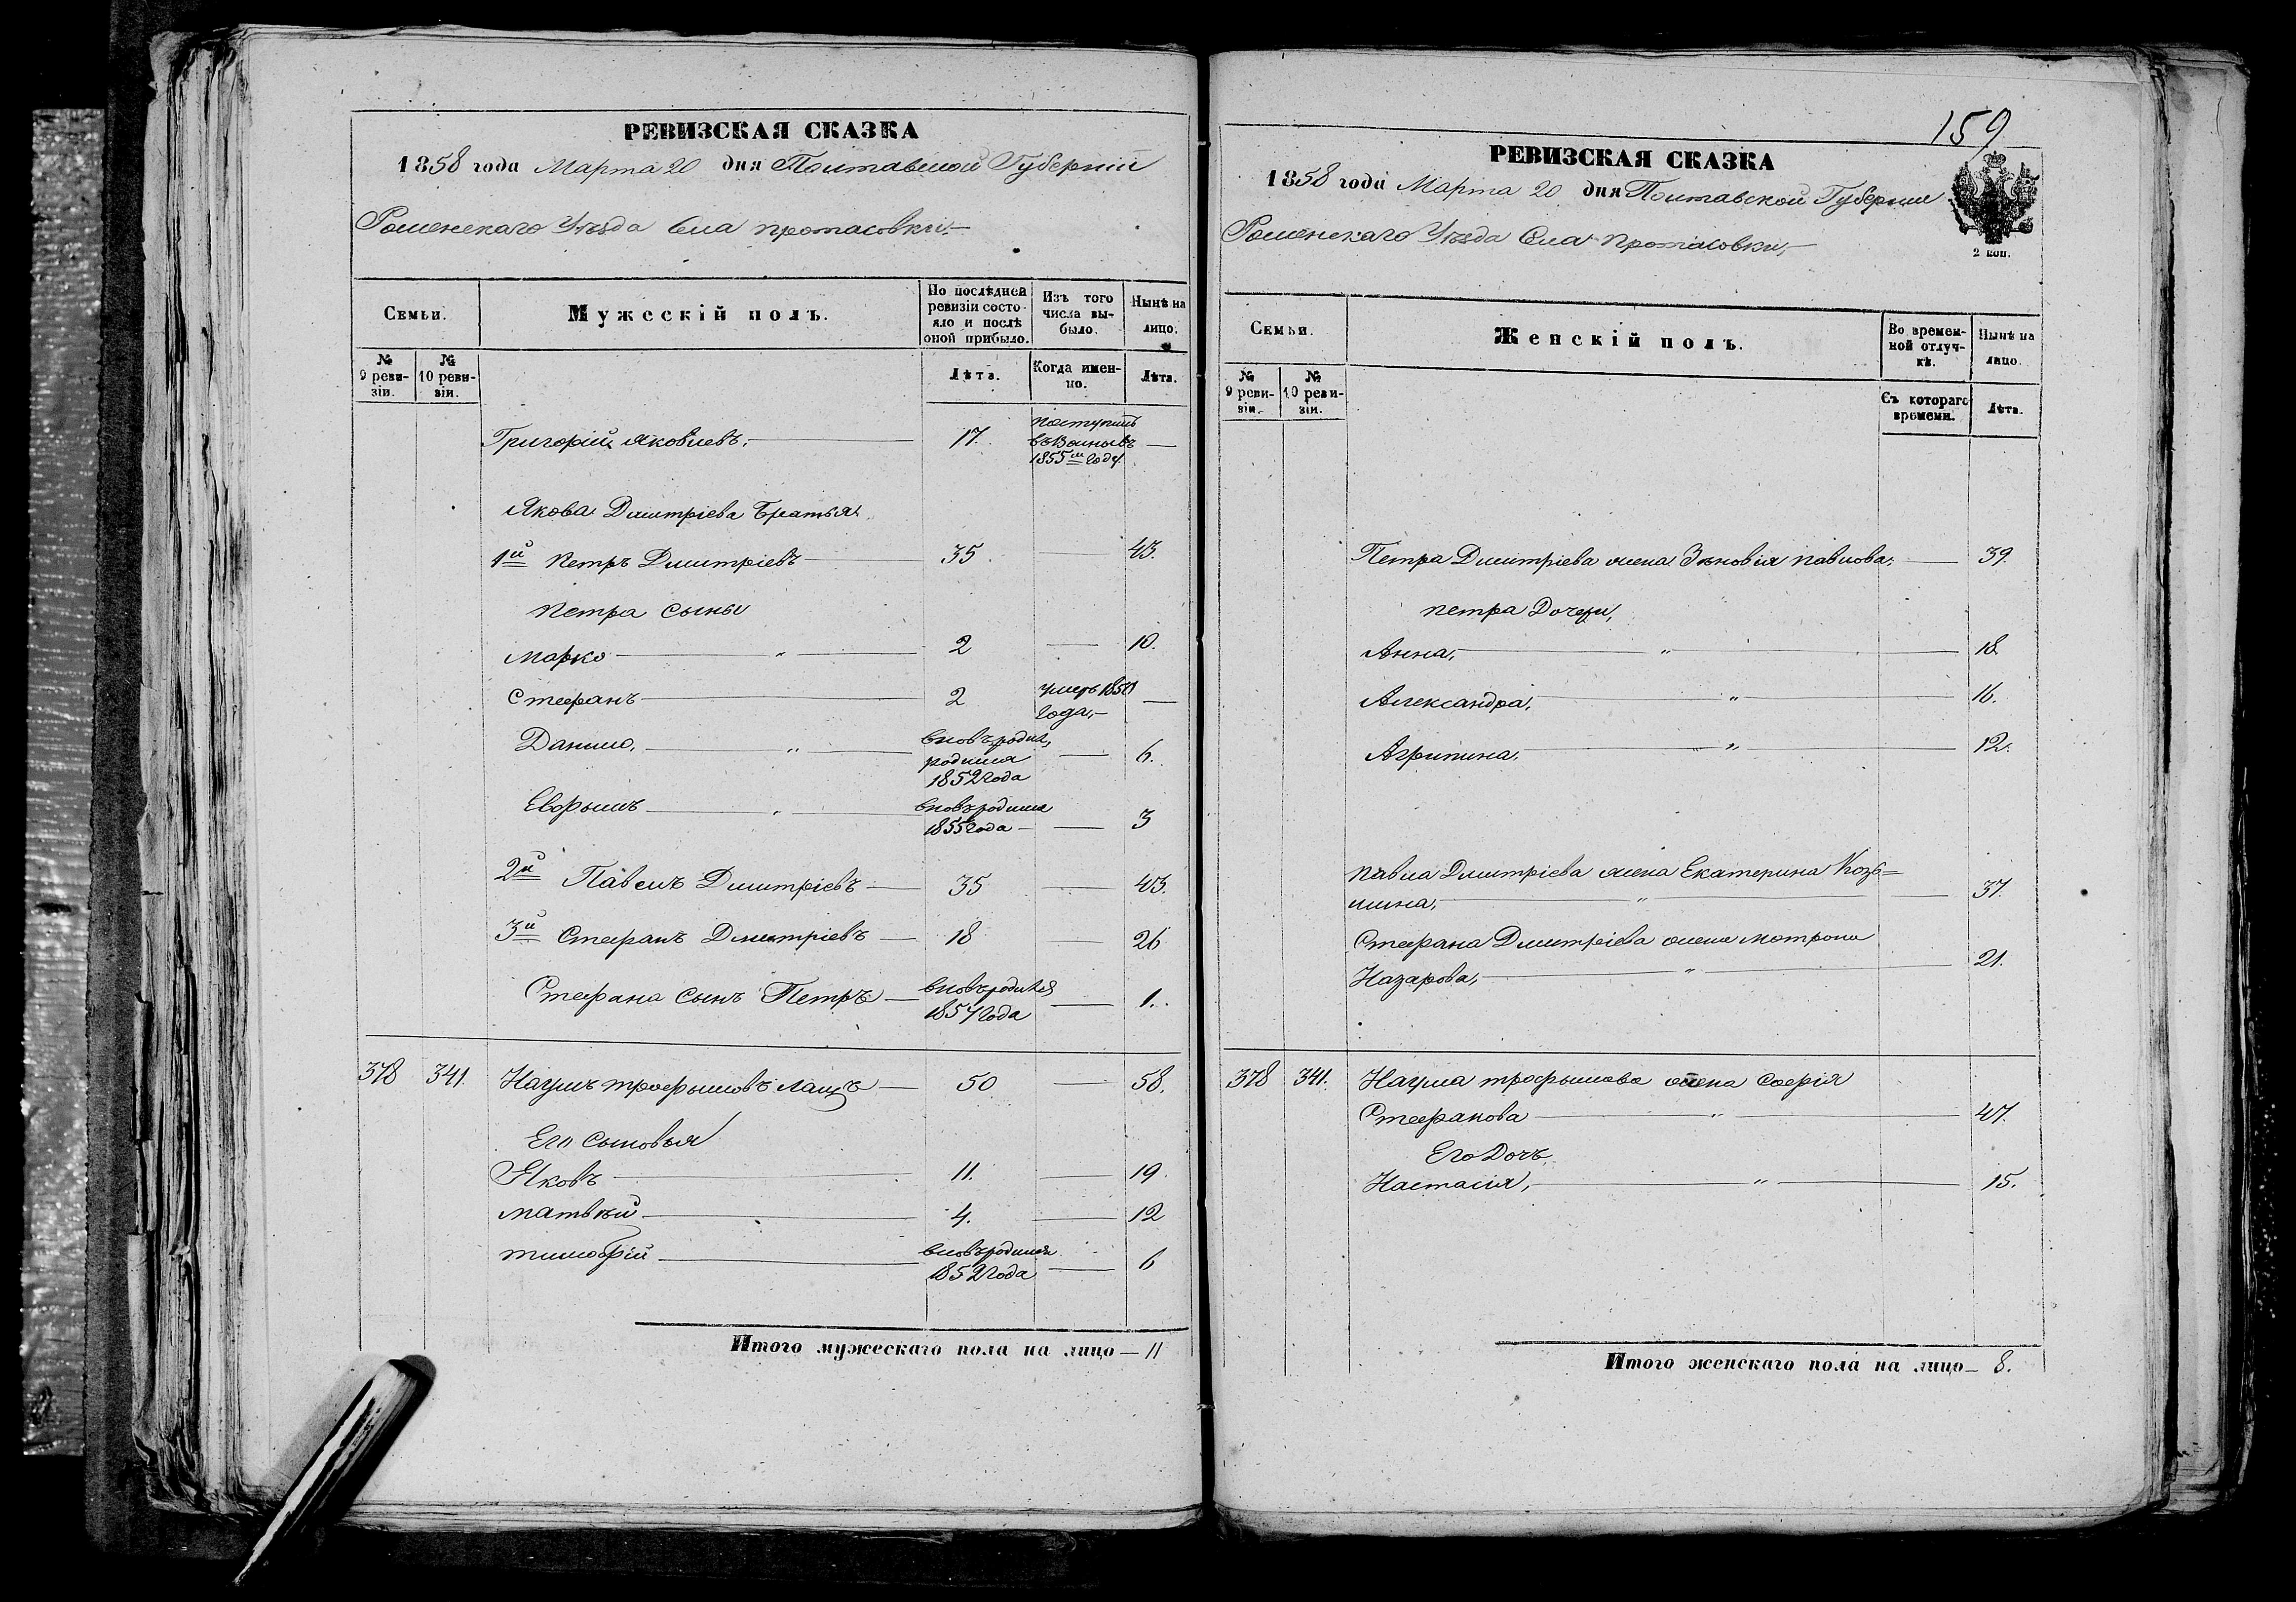 РЕВИЗСКАЯ СКАЗКА
1858 года Марта 20 дня Полтавской Губерніи
Роменскаго Уѣзда Села Протасовки,
Семьи.
Мужескій полъ.
По послѣдней ревизіи состояло и послѣ оной прибыло.
Изъ того числа выбыло.
Нынѣ на лицо.
№ 9 ревизіи.
№ 10 ревизіи.
Лѣта.
Когда именно.
Лѣта.
Григорій Яковлевъ, 17. поступилъ
1855го году —
Якова Дмитріева Братья
1й Петръ Дмитріевъ 35. — 43.
Петра Сыны
Марко " 2 — 10.
Стефанъ 2 умеръ 1850 —
года,
Данило, " вновь —
родился 6.
1852 года
" вновьродился
1855 года — 3
2й Павелъ Дмитріевъ 35 — 43.
3й Стефанъ Дмитріевъ 18 — 26
Стефана сынъ Петръ вновьродился — 1.
1857 года
378 341. Наумъ Трофимовъ 50 — 58.
Его Сыновья
Яковъ 11. — 19.
Матвѣй 4. — 12
Тимофій вновьродился
1852 года — 6
Итого мужескаго пола на лицо — 11
159
РЕВИЗСКАЯ СКАЗКА
1858 года Марта 20 дня Полтавской Губерніи
Роменскаго Уѣзда Села Протасовки,
2 коп.
Семьи.
Женскій полъ.
Во временной отлучкѣ.
Нынѣ на лицо.
№ 9 ревизіи.
№ 10 ревизіи.
Съ котораго времени.
Лѣта.
Петра Дмитріева жена Зѣновія Павлова, — 39.
Петра Дочери,
Анна, " 18.
Александра, " 16.
Агрипина, " 12.
Павла Дмитріева жена Екатерина Козь=
мина, " 37.
Стефана Дмитріева жена Мотрона
Назарова, " 21.
378 341. Наума Трофимова жена Софія
Стефанова " 47.
Его Дочь,
Настасія, " 15.
Итого женскаго пола на лицо — 8.